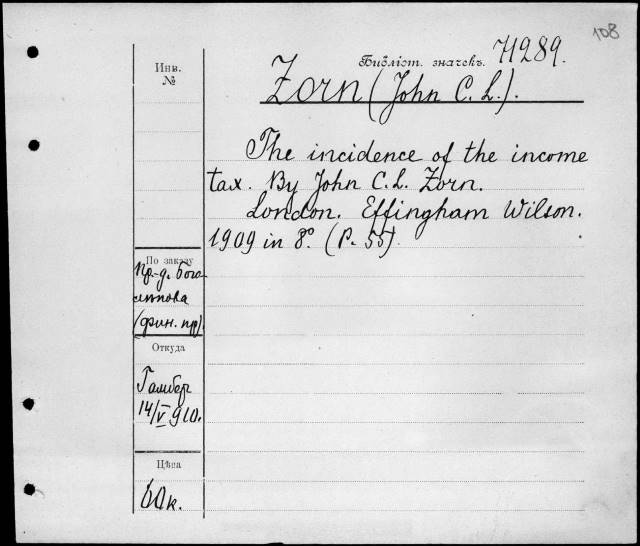 108
Библіот. значекъ. 71289.
Инв.
№
Zorn (John C. L.).
The incidence of the income
tax. By John C. L. Zorn.
London. Effingham Wilson.
1909 in 8°. (P. 55).
По заказу
пр.-д. Бого
лѣпова
(фин. пр).
Откуда
Гамбер
14/V 910.
Цѣна
60к.